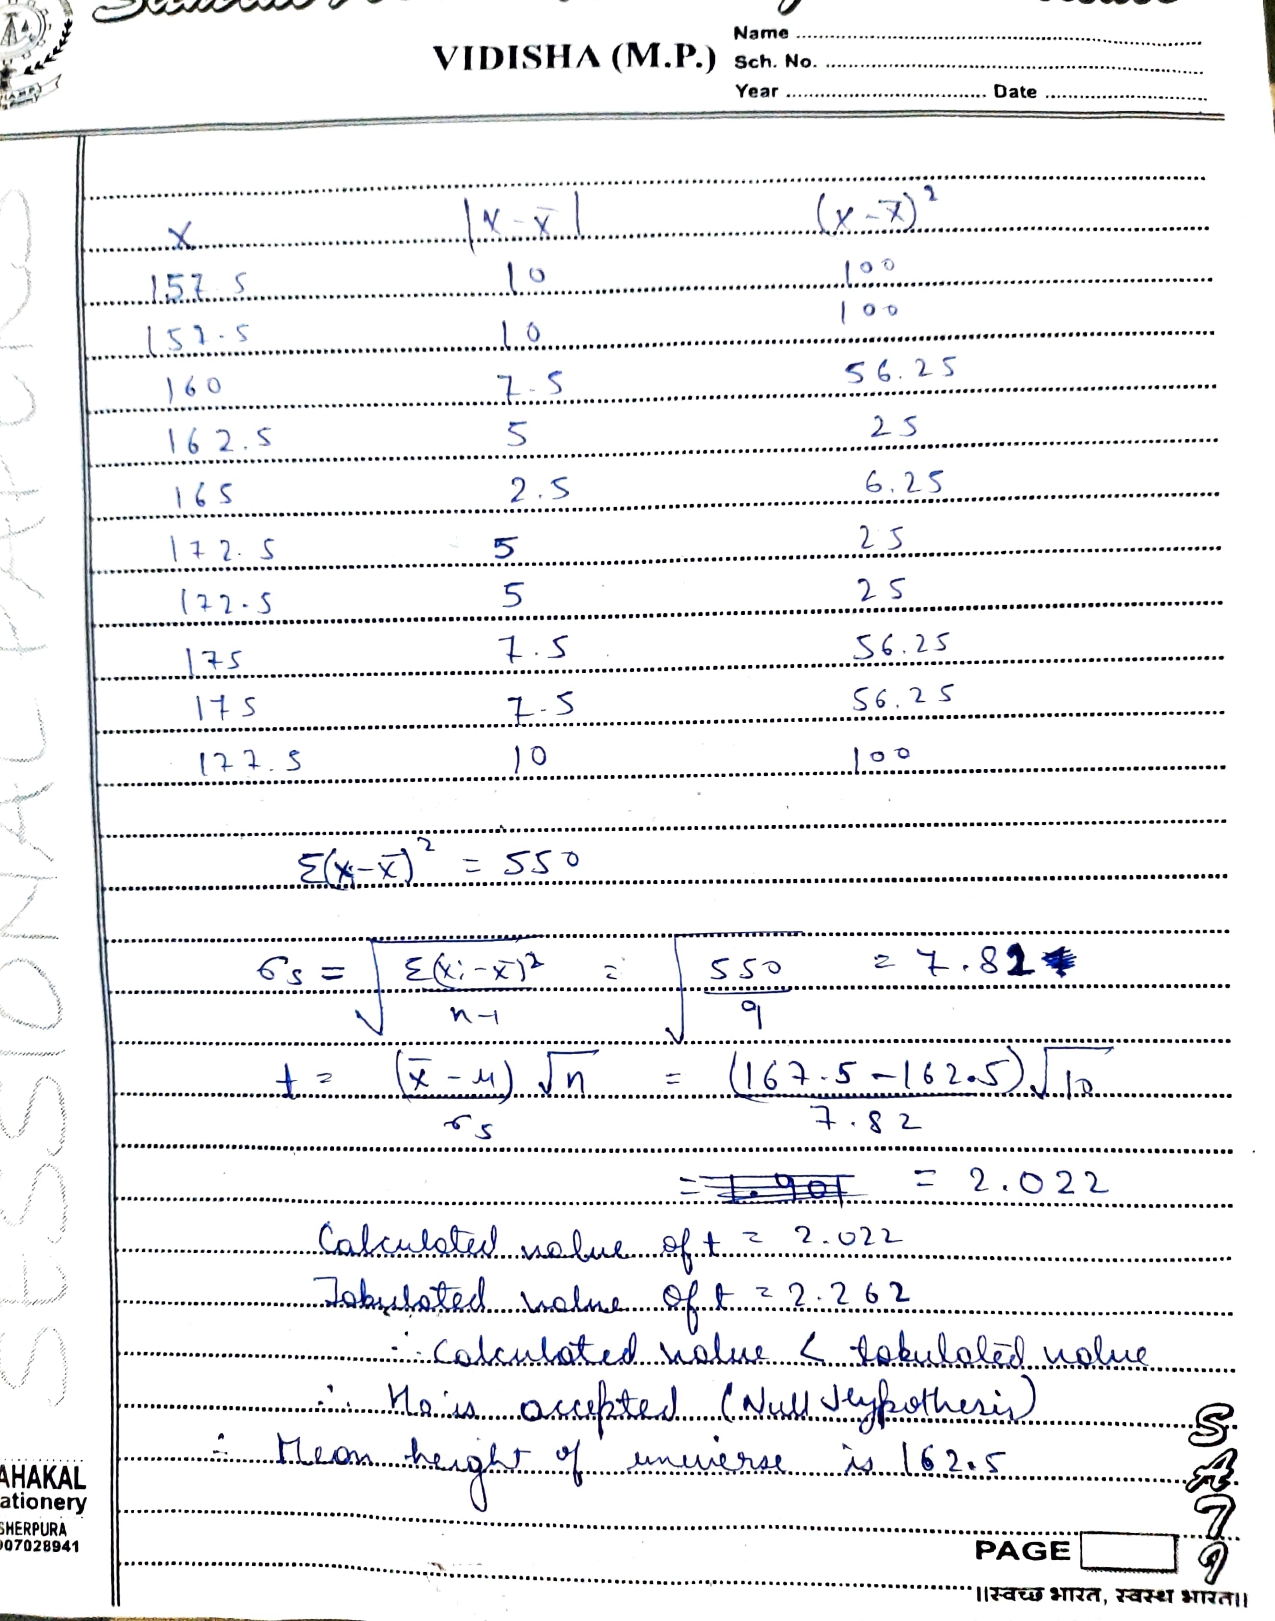 VIDISHA (M.P.)
Name
Sch. No.
Year Date
SESSIONAL PAPERS
X |X - x̄| (x - x̄)²
157.5 10 100
157.5 10 100
160 7.5 56.25
162.5 5 25
165 2.5 6.25
172.5 5 25
172.5 5 25
175 7.5 56.25
175 7.5 56.25
177.5 10 100
Σ(xi - x̄)² = 550
σs = √(Σ(xi - x̄)² / n-1) = √(550 / 9) = 7.82
t = (x̄ - μ) √n / σs = (167.5 - 162.5) √10 / 7.82
= 2.022
Calculated value of t = 2.022
Tabulated value of t = 2.262
∴ Calculated value < tabulated value
∴ Ho is accepted (Null Hypothesis)
∴ Mean height of universe is 162.5
AHAKAL
ationery
SHERPURA
907028941
SA79
PAGE
॥स्वच्छ भारत, स्वस्थ भारत॥